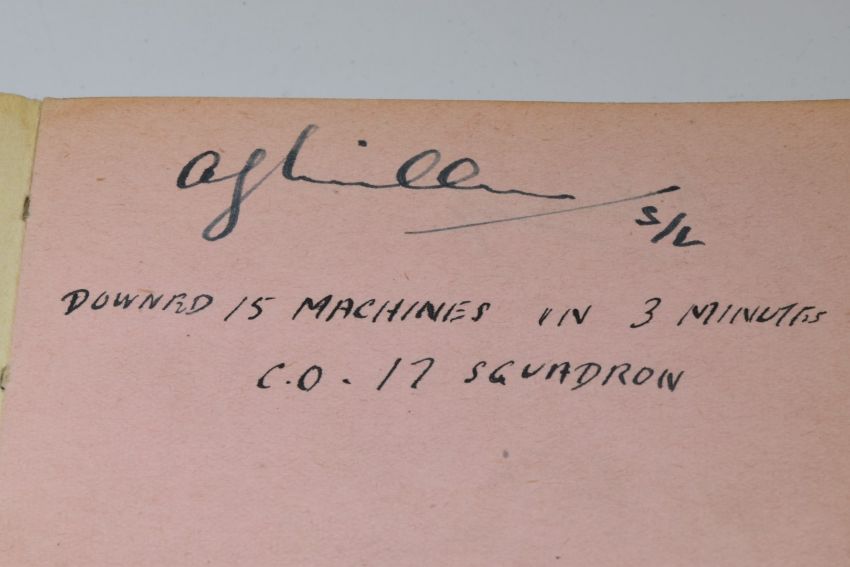 AGMiller
S/L
DOWNED 15 MACHINES IN 3 MINUTES
C.O. 17 SQUADRON